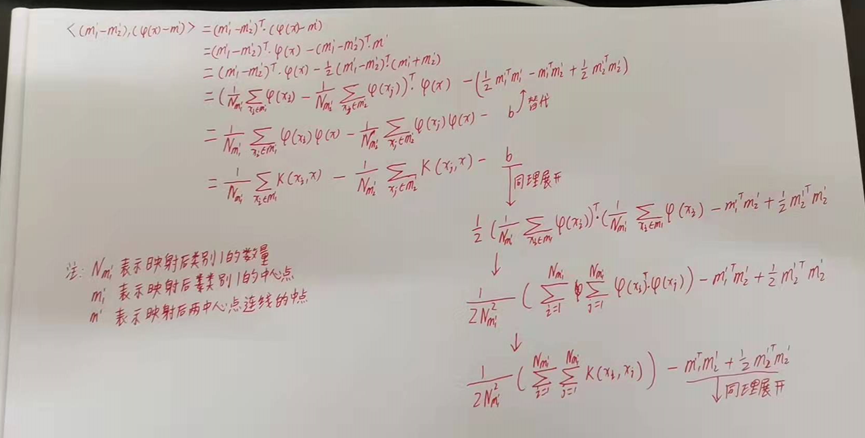 <(m₁'-m₂'),(φ(x)-m')> = (m₁'-m₂')ᵀ·(φ(x)-m')
= (m₁'-m₂')ᵀ·φ(x) - (m₁'-m₂')ᵀ·m'
= (m₁'-m₂')ᵀ·φ(x) - ½(m₁'-m₂')ᵀ(m₁'+m₂')
= (1/N_{m₁'} ∑_{x_i∈m₁'} φ(x_i) - 1/N_{m₂'} ∑_{x_j∈m₂'} φ(x_j))ᵀ·φ(x) - (½m₁'ᵀm₁' - m₁'ᵀm₂' + ½m₂'ᵀm₂')
= 1/N_{m₁'} ∑_{x_i∈m₁'} φ(x_i)φ(x) - 1/N_{m₂'} ∑_{x_j∈m₂'} φ(x_j)φ(x) - b ↑替代
= 1/N_{m₁'} ∑_{x_i∈m₁'} K(x_i,x) - 1/N_{m₂'} ∑_{x_j∈m₂'} K(x_j,x) - b
↓同理展开
½(1/N_{m₁'} ∑_{x_i∈m₁'} φ(x_i))ᵀ·(1/N_{m₁'} ∑_{x_i∈m₁'} φ(x_i) - m₁'ᵀm₂' + ½m₂'ᵀm₂'
↓
1/2N²_{m₁'} (∑_{i=1}^{N_{m₁'}} ∑_{j=1}^{N_{m₁'}} φ(x_i)ᵀ·φ(x_j)) - m₁'ᵀm₂' + ½m₂'ᵀm₂'
↓
1/2N²_{m₁'} (∑_{i=1}^{N_{m₁'}} ∑_{j=1}^{N_{m₁'}} K(x_i,x_j)) - m₁'ᵀm₂' + ½m₂'ᵀm₂'
↓同理展开
注: N_{m₁'} 表示映射后类别1的数量
m₁' 表示映射后类别1的中心点
m' 表示映射后两中心点连线的中点